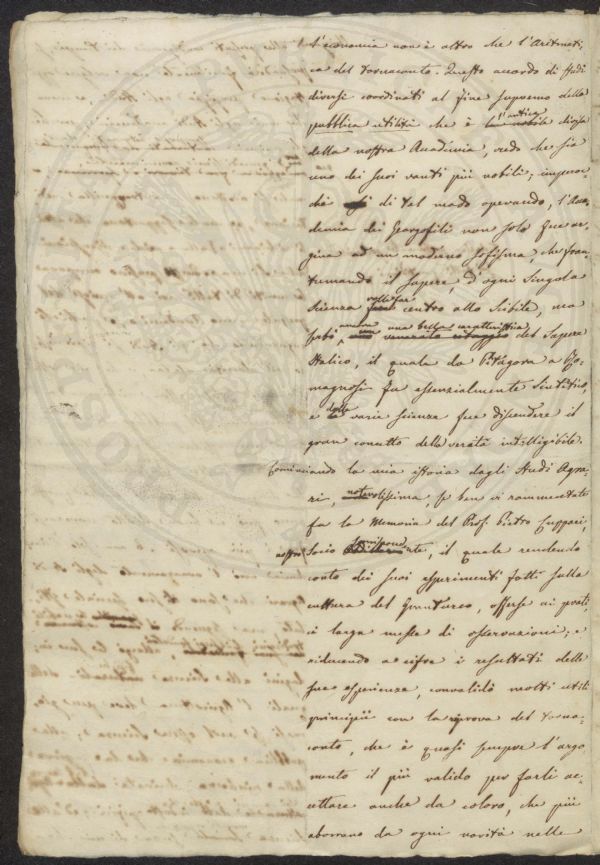 l'economia non è altro che l'Aritmeti,
ca del tornaconto. Questo accordo di studi
diversi coordinati al fine supremo della
pubblica utilità che è l'antica divisa
della nostra Accademia, credo che sia
uno dei suoi vanti più nobili; imperoc
chè di tal modo operando, l'Acca
demia dei Georgofili non solo fece ar,
gine ad un moderno sofisma, che fran
tumando il sapere, d'ogni singola
scienza centro allo Scibile, ma
serbò ancora una bella caratteristica del Sapere
Italico, il quale da Pitagora a Ro,
magnosi fu essenzialmente Sintetico,
e dalle varie scienze fece discendere il
gran concetto della verità intelligibile.
Cominciando la mia istoria dagli Studi Agra,
ri, notevolissima, se ben vi rammentate
fu la Memoria del Prof. Pietro Cuppari,
nostro Socio corrispondente, il quale rendendo
conto dei suoi esperimenti fatti sulla
cultura del Granturco, offerse ai pratici
larga messe di osservazioni; e
riducendo a cifra i resultati delle
sue esperienze, convalidò molti utili
principii con la riprova del torna,
conto, che è quasi sempre l'argo
mento il più valido per farli ac,
cettare anche da coloro, che più
aborrano da ogni novità nelle